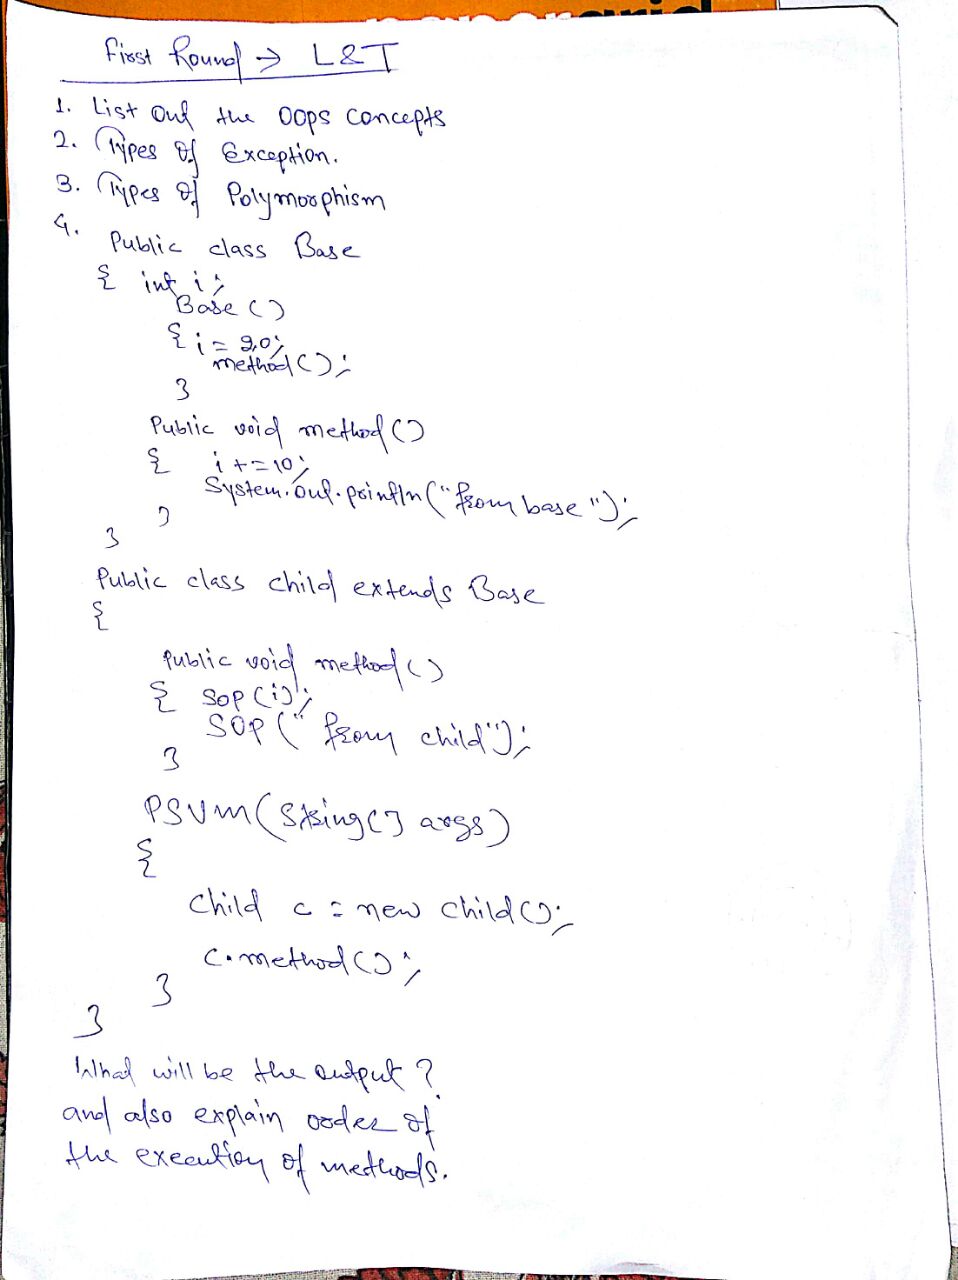 First Round → L&T
1. List out the OOPS concepts
2. Types of Exception.
3. Types of Polymorphism
4.
Public class Base
{ int i;
Base ()
{ i = 20;
method();
}
Public void method()
{ i += 10;
System.out.println("from base");
}
}
Public class child extends Base
{
Public void method()
{ SOP(i);
SOP(" from child");
}
PSVM(String[] args)
{
Child c = new child();
C.method();
}
}
What will be the output ?
and also explain order of
the execution of methods.